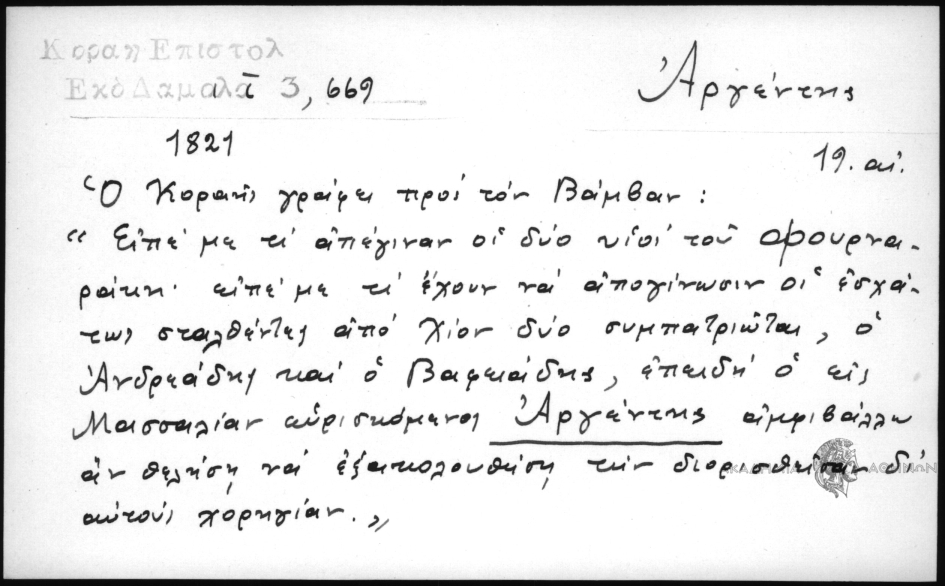 Κοραη Επιστολ
Εκδ Δαμαλα τ 3, 669
Ἀργέντης
1821
19. αἰ.
Ὁ Κοραῆς γράφει πρὸς τὸν Βάμβαν :
“ Εἰπέ με τί ἀπέγιναν οἱ δύο υἱοὶ τοῦ Φουρνα-
ράκη· εἰπέ με τί ἔχουν νὰ ἀπογίνωσιν οἱ ἐσχά-
τως σταλθέντες ἀπὸ Χίον δύο συμπατριῶται, ὁ
Ἀνδρεάδης καὶ ὁ Βαφειάδης, ἐπειδὴ ὁ εἰς
Μασσαλίαν εὑρισκόμενος Ἀργέντης ἀμφιβάλλω
ἂν θελήσῃ νὰ ἐξακολουθήσῃ τὴν διορισθεῖσαν δι'
αὐτοὺς χορηγίαν. „
ΑΚΑΔΗΜΙΑ ΑΘΗΝΩΝ